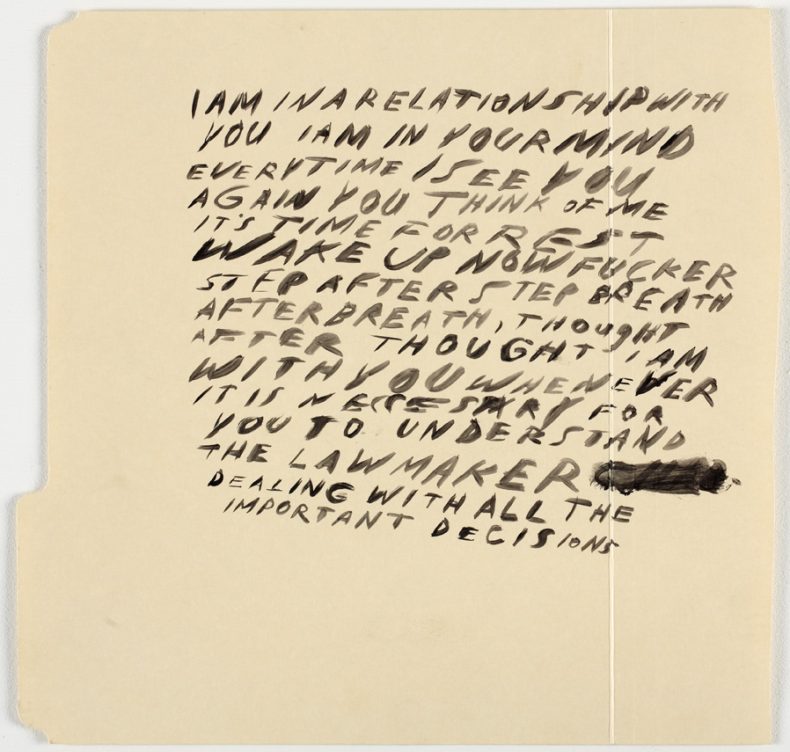 I AM IN A RELATIONSHIP WITH
YOU I AM IN YOUR MIND
EVERYTIME I SEE YOU
AGAIN YOU THINK OF ME
IT'S TIME FOR REST
WAKE UP NOW FUCKER
STEP AFTER STEP BREATH
AFTER BREATH, THOUGHT
AFTER THOUGHT I AM
WITH YOU WHENEVER
IT IS NECESSARY FOR
YOU TO UNDERSTAND
THE LAWMAKER
DEALING WITH ALL THE
IMPORTANT DECISIONS